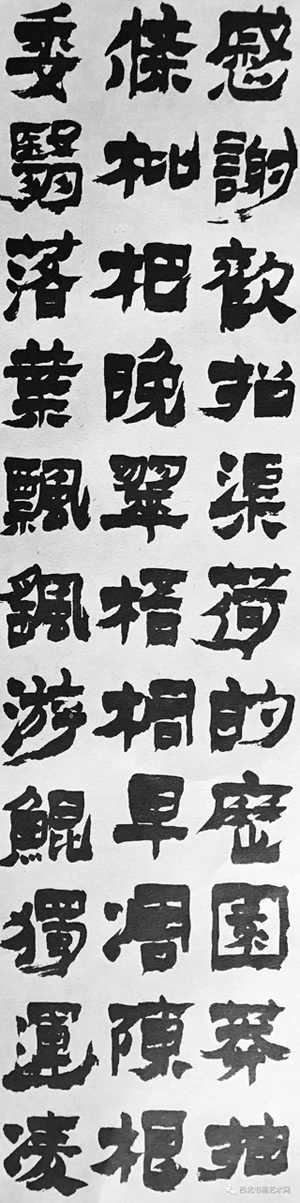 慼謝歡招渠荷的歷園莽抽
條枇杷晚翠梧桐早凋陳根
委翳落葉飄颻游鯤獨運凌
西北书画艺术网